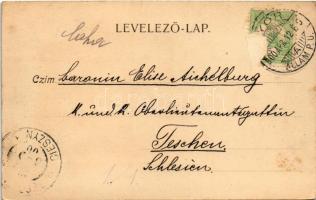 LEVELEZŐ-LAP.
Czim Baronin Elise Aichelburg
K. und K. Oberlieutenantsgattin
Teschen
Schlesien.